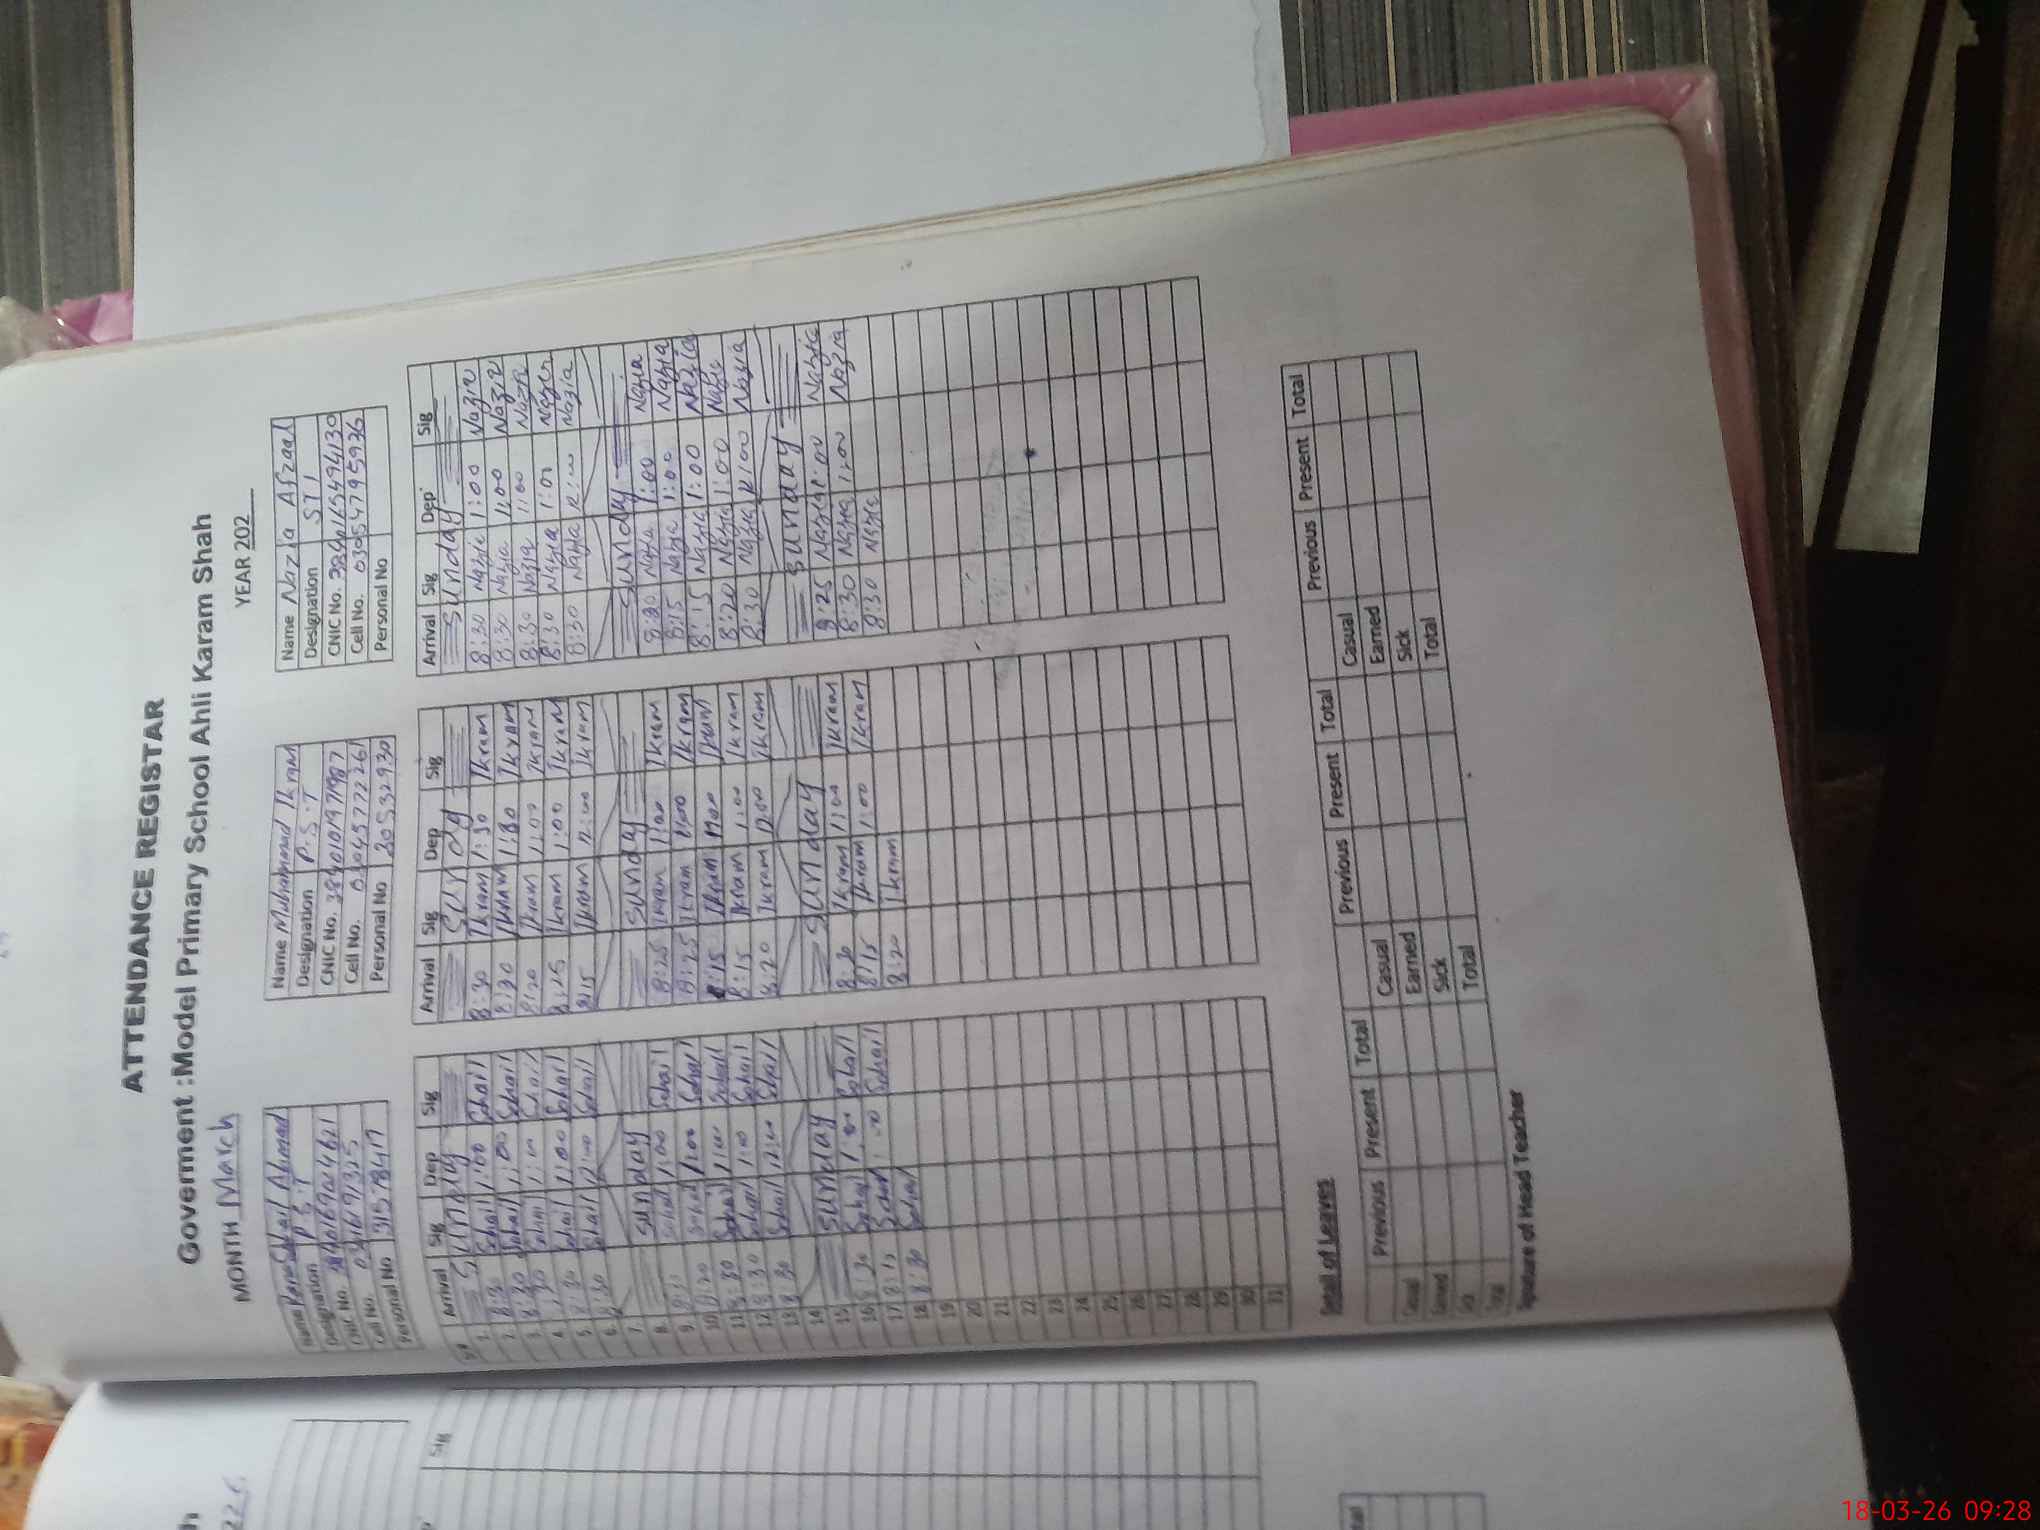 ATTENDANCE REGISTAR
Goverment :Model Primary School Ahli Karam Shah
MONTH March YEAR 202
Name Sohail Ahmad
Designation P.S.T
CNIC No.
Cell No.
Personal No 31578417
Name Muhammad Ikram
Designation P.S.T
CNIC No.
Cell No. 03045772261
Personal No 20532930
Name Nazia Afzaal
Designation STI
CNIC No.
Cell No. 03054795936
Personal No
Arrival Sig Dep Sig Arrival Sig Dep Sig Arrival Sig Dep Sig
1. Sunday Sunday Sunday
2. 8:30 Sohail 1:00 Sohail 8:30 Ikram 1:30 Ikram 8:30 Nazia 1:00
3. 8:30 Sohail 1:00 Sohail 8:30 Ikram 1:30 Ikram 8:30 Nazia 1:00
4. Sohail 1:00 Sohail 8:20 Ikram 1:00 Ikram 8:30 Nazia 1:00
5. 8:30 Sohail 1:00 Sohail 8:25 Ikram 1:00 Ikram 8:30 Nazia 1:00
6. 8:30 Sohail 12:00 Sohail 8:15 Ikram 12:00 Ikram 8:30 Nazia 12:00 Nazia
7.
8. Sunday Sunday Sunday
9. Sohail 1:00 Sohail 8:25 Ikram 1:00 Ikram Nazia 1:00 Nazia
10. 8:20 Sohail 1:00 Sohail 8:25 Ikram 1:00 Ikram 8:15 Nazia 1:00 Nazia
11. 8:30 Sohail 1:00 Sohail 8:15 Ikram 1:00 Ikram 8:15 Nazia 1:00 Nazia
12. 8:30 Sohail 1:00 Sohail 8:15 Ikram 1:00 Ikram 8:20 Nazia 1:00 Nazia
13. 8:30 Sohail 12:00 Sohail 8:20 Ikram 12:00 Ikram 8:30 Nazia 12:00 Nazia
14
15 Sunday Sunday Sunday
16 8:30 Sohail 1:00 Sohail 8:30 Ikram 1:00 Ikram 8:25 Nazia 1:00 Nazia
17 8:15 Sohail Sohail 8:15 Ikram 1:00 Ikram 8:30 Nazia 1:00 Nazia
18 8:30 Sohail 8:20 Ikram 8:30 Nazia
19
20
21
22
23
24
25
26
27
28
29
30
31
Detail of Leaves
Previous Present Total Previous Present Total Previous Present Total
Casual Casual Casual
Earned Earned Earned
Sick Sick Sick
Total Total Total
Signature of Head Teacher
Sig
18-03-26 09:28